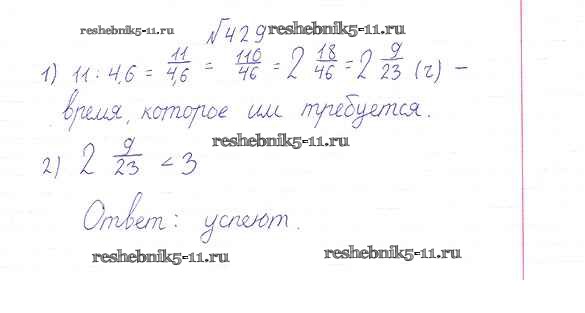 reshebnik5-11.ru №429 reshebnik5-11.ru
1) 11 : 4,6 = 11/4,6 = 110/46 = 2 18/46 = 2 9/23 (ч) –
время, которое им требуется.
reshebnik5-11.ru
2) 2 9/23 < 3
Ответ: успеют.
reshebnik5-11.ru reshebnik5-11.ru